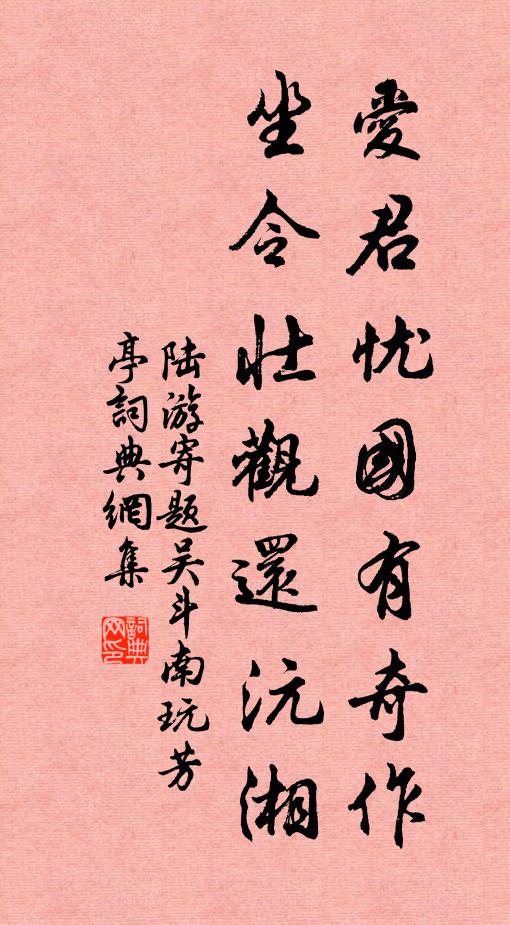 愛君忧國有奇作
坐令壮觀還沅湘
陆游寄题吴斗南玩芳
亭詞典網集
詞典
网印